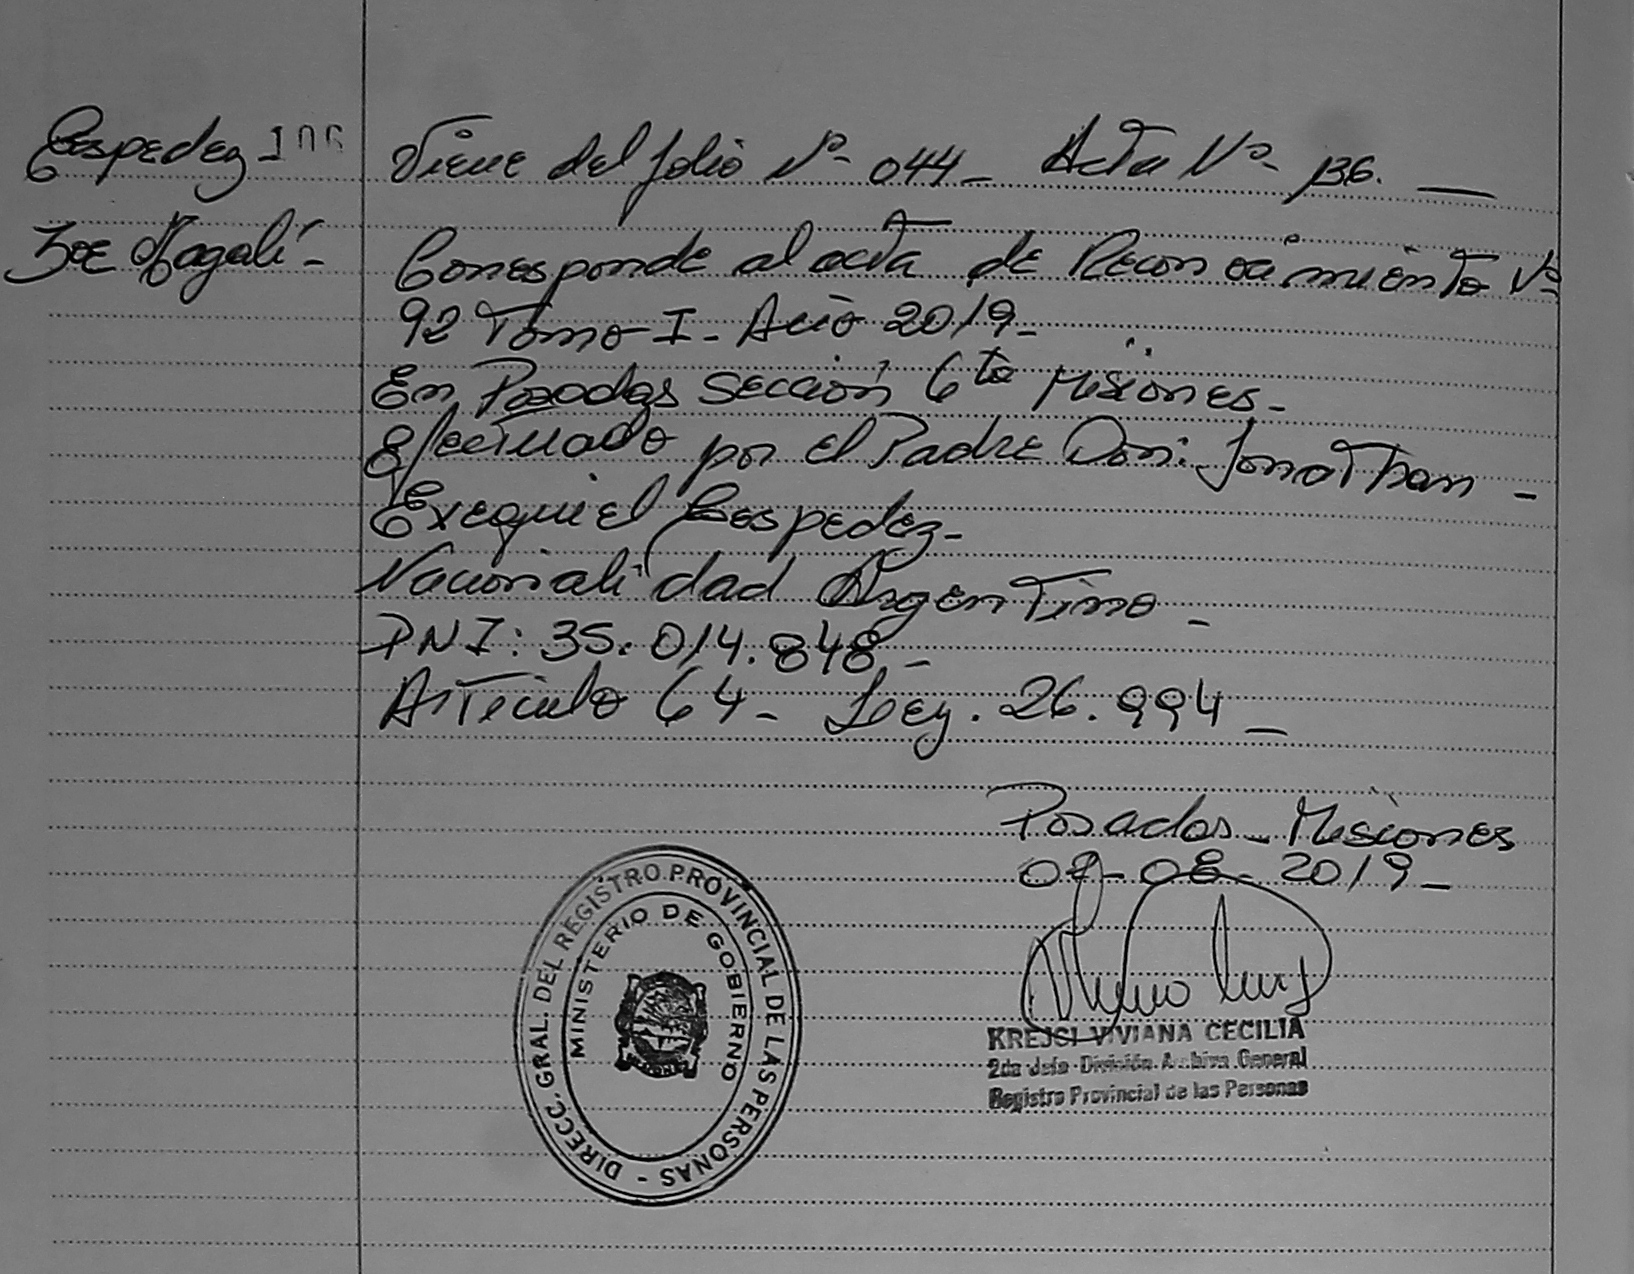 Cespedez
Zoe Magalí-
Viene del folio Nº- 044- Acta Nº- 136. —
Corresponde al acta de Reconocimiento Nº
92 Tomo-I- Año 2019-
En Posadas sección 6ta Misiones-
Efectuado por el Padre Don: Jonathan -
Exequiel Cespedez-
Nacionalidad Argentino -
DNI: 35.014.848 -
Artículo 64- Ley. 26.994 —
Posadas- Misiones
-08-2019-
DIRECC. GRAL. DEL REGISTRO PROVINCIAL DE LAS PERSONAS -
MINISTERIO DE GOBIERNO
KREJSI VIVIANA CECILIA
2da Jefa División Archivo General
Registro Provincial de las Personas